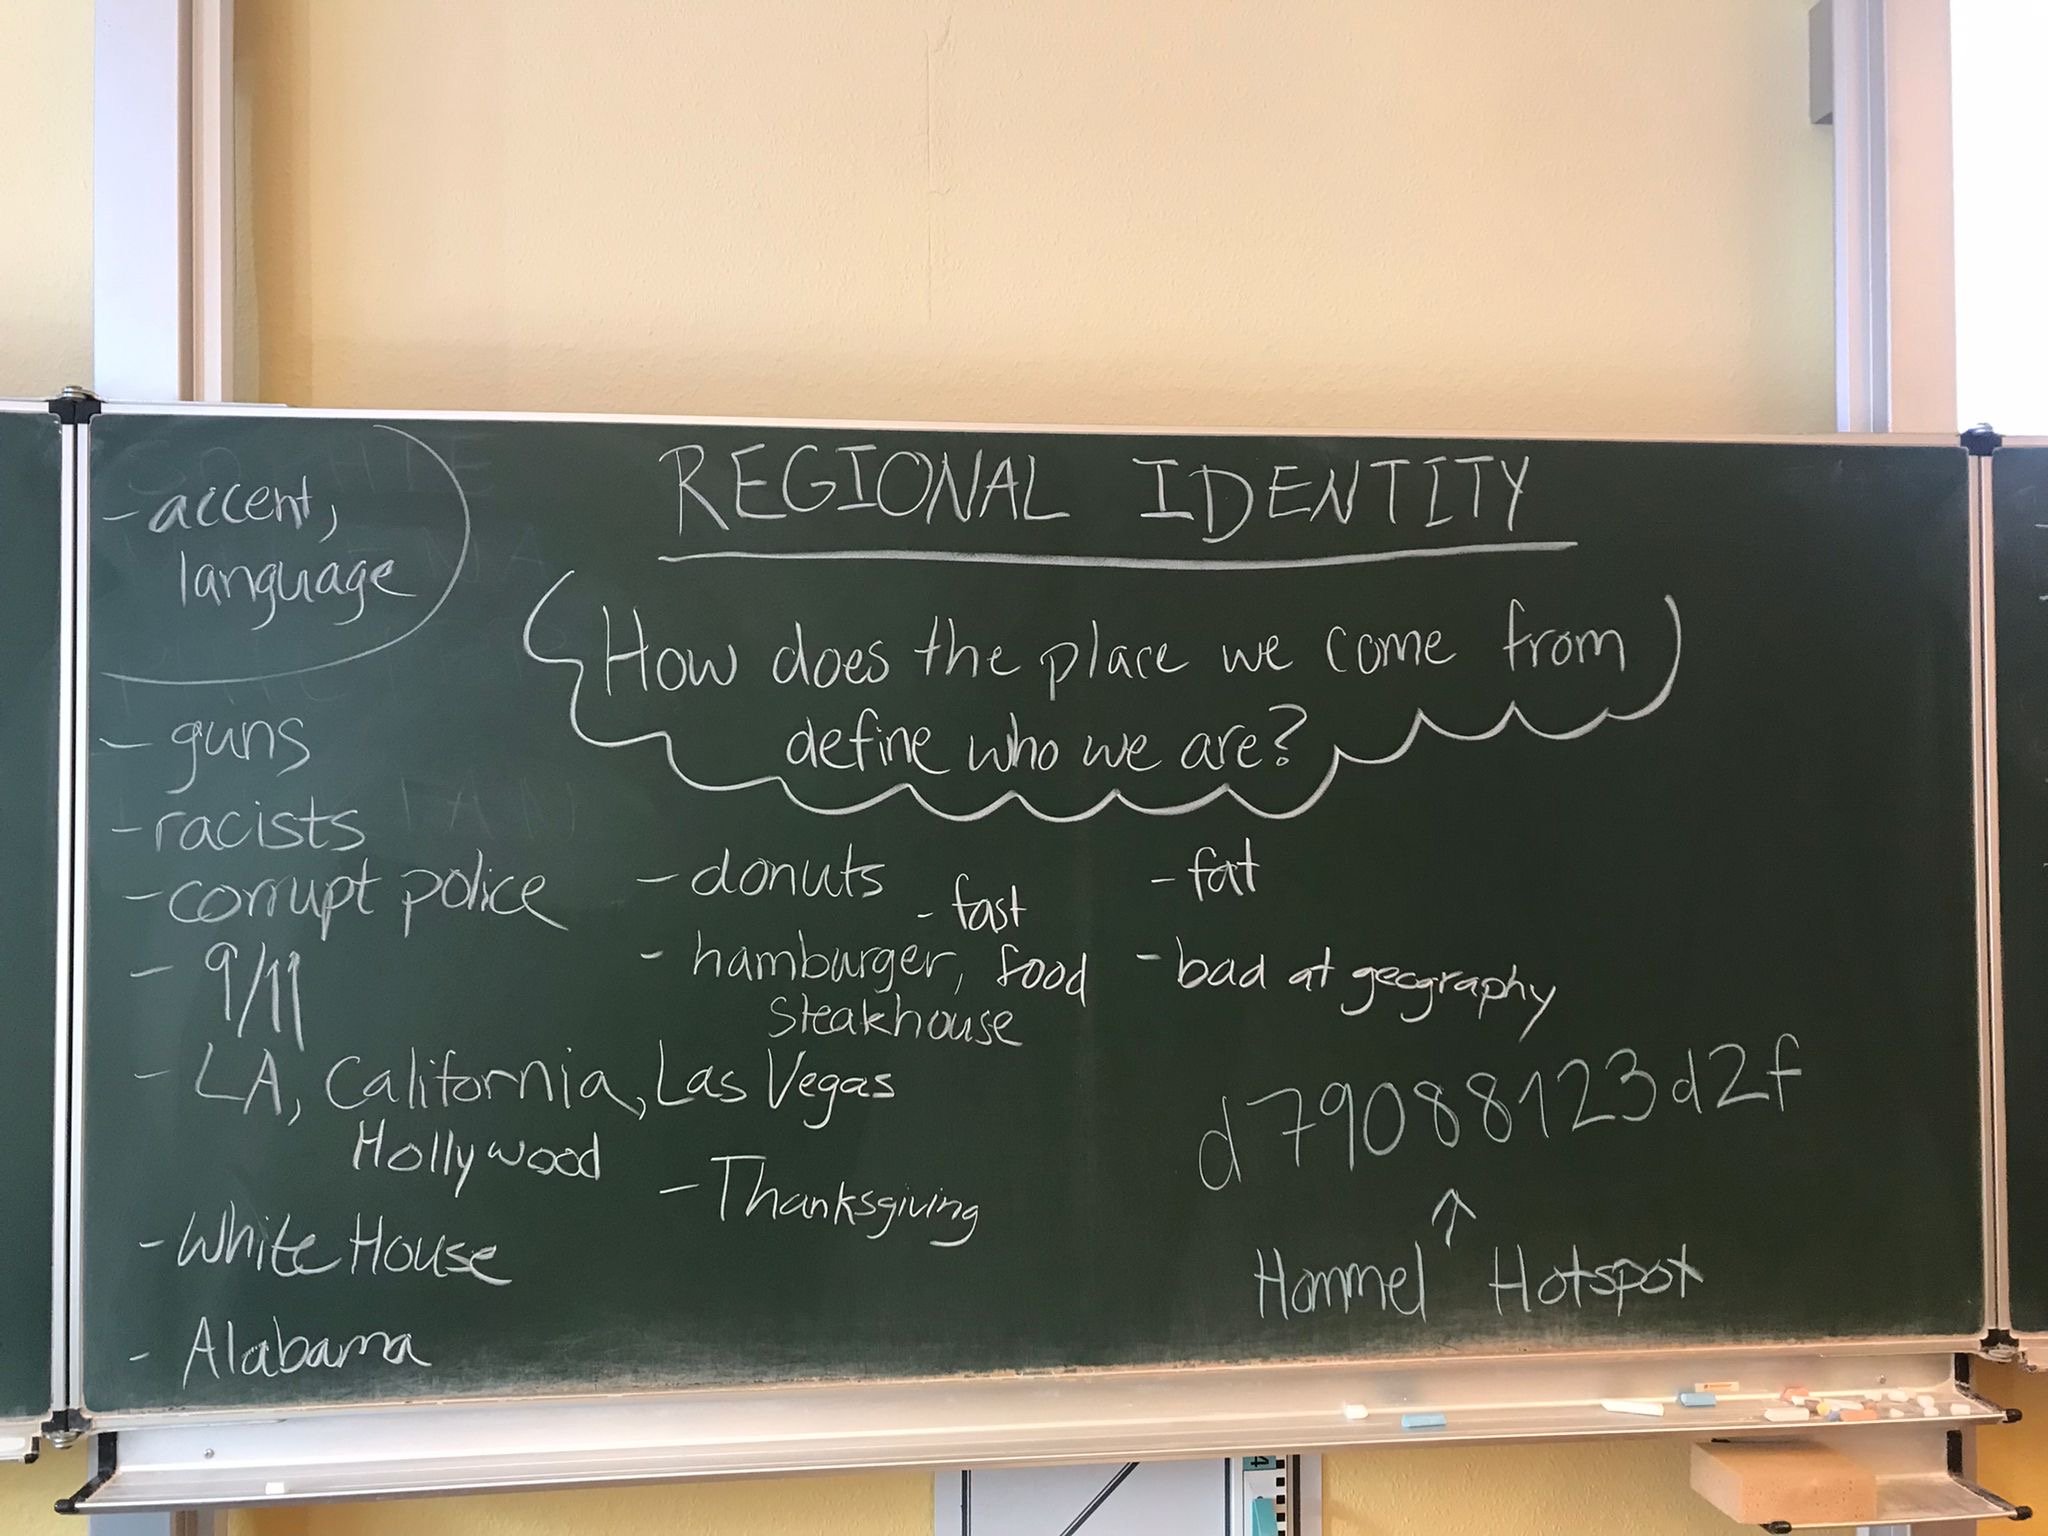 REGIONAL IDENTITY
How does the place we come from
define who we are?
- accent,
language
- guns
- racists
- corrupt police
- 9/11
- LA, California, Las Vegas
Hollywood
- White House
- Alabama
- donuts
- fast
food
- hamburger,
steakhouse
- Thanksgiving
- fat
- bad at geography
d79088123d2f
↑
Hommel Hotspot
4